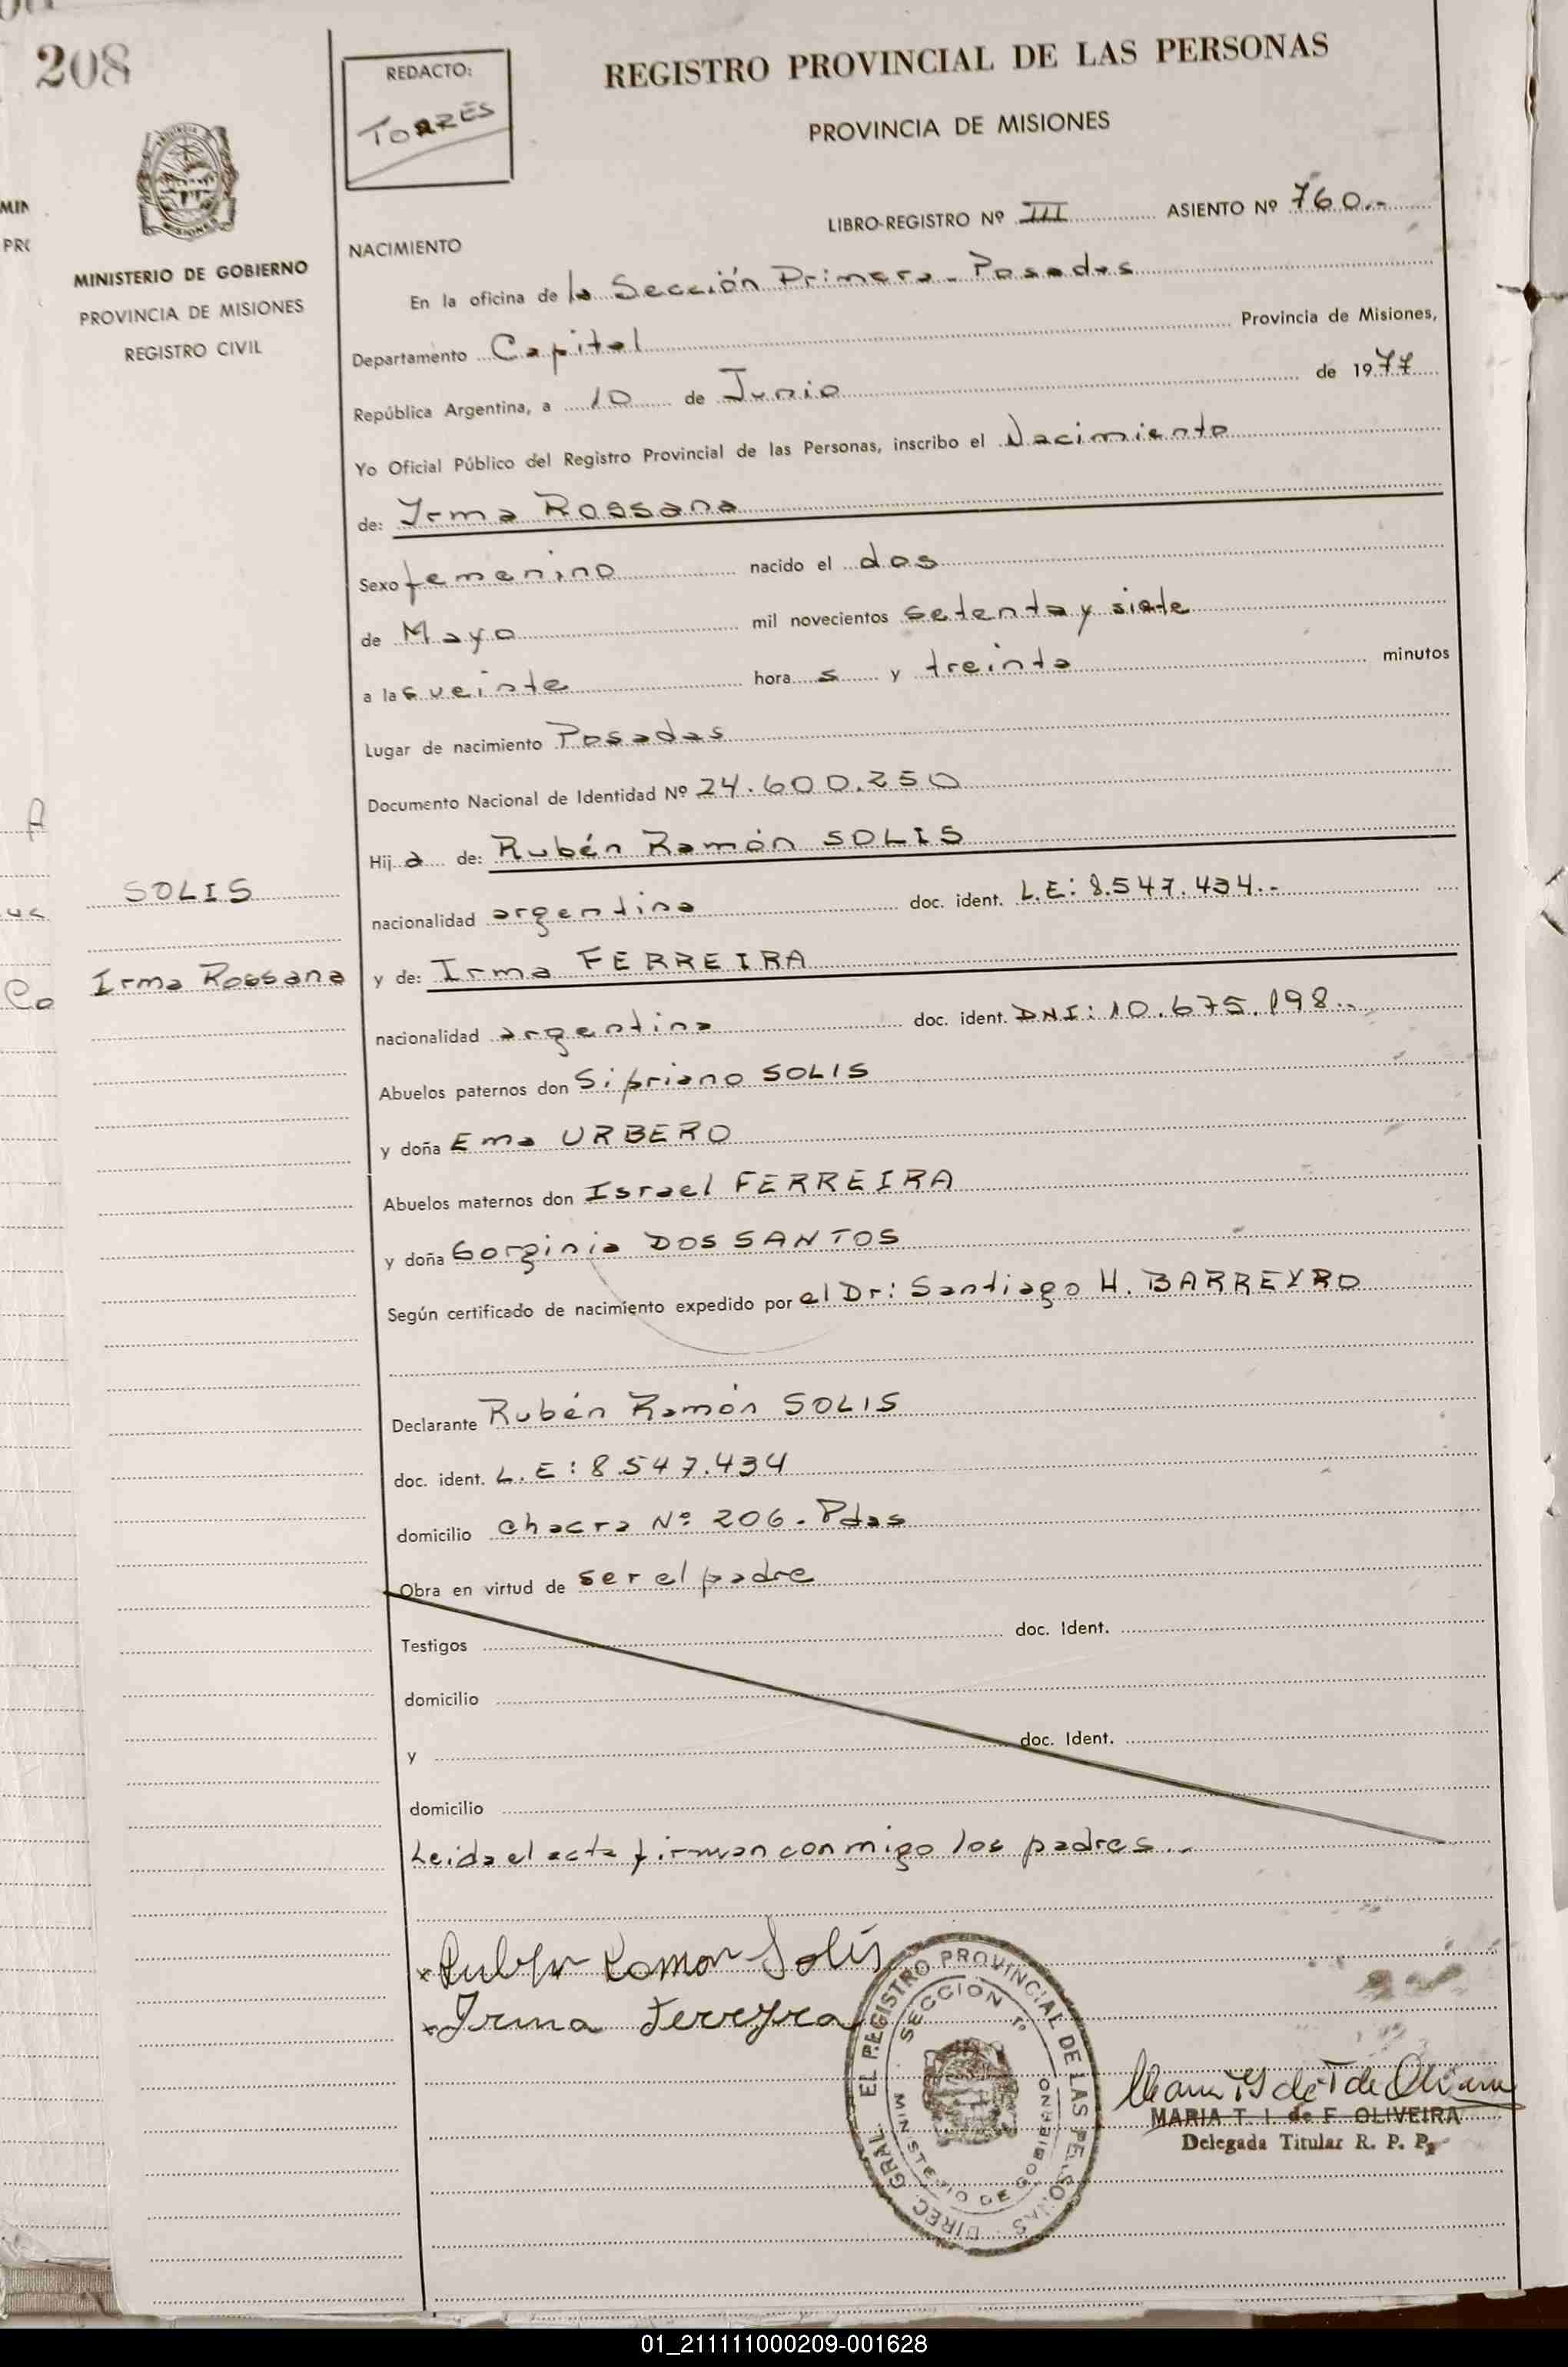 208
REDACTO:
TORRES
REGISTRO PROVINCIAL DE LAS PERSONAS
PROVINCIA DE MISIONES
LIBRO-REGISTRO Nº III ASIENTO Nº 760.-
MINISTERIO DE GOBIERNO
PROVINCIA DE MISIONES
REGISTRO CIVIL
NACIMIENTO
En la oficina de la Sección Primera - Posadas
Departamento Capital Provincia de Misiones,
República Argentina, a 10 de Junio de 1977
Yo Oficial Público del Registro Provincial de las Personas, inscribo el Nacimiento
de: Irma Rossana
Sexo femenino nacido el dos
de Mayo mil novecientos setenta y siete
a las veinte hora s y treinta minutos
Lugar de nacimiento Posadas
Documento Nacional de Identidad Nº 24.600.250
Hij a de: Rubén Ramón SOLIS
SOLIS
nacionalidad argentina doc. ident. L.E: 8.547.434.-
Irma Rossana
y de: Irma FERREIRA
nacionalidad argentina doc. ident. DNI: 10.675.198..
Abuelos paternos don Sipriano SOLIS
y doña Ema URBERO
Abuelos maternos don Israel FERREIRA
y doña Gorginia DOS SANTOS
Según certificado de nacimiento expedido por el Dr: Santiago H. BARREYRO
Declarante Rubén Ramón SOLIS
doc. ident. L.E: 8.547.434
domicilio chacra Nº 206 - Pdas
Obra en virtud de ser el padre
Testigos doc. Ident.
domicilio
y doc. Ident.
domicilio
Leida el acta firman conmigo los padres..
x Ruben Ramon Solís
x Irma Ferreyra
DIREC. GRAL. EL REGISTRO PROVINCIAL DE LAS PERSONAS
SECCION 1º
MINISTERIO DE GOBIERNO
MARIA T. I. de F. OLIVEIRA
Delegada Titular R. P. P.
01_211111000209-001628